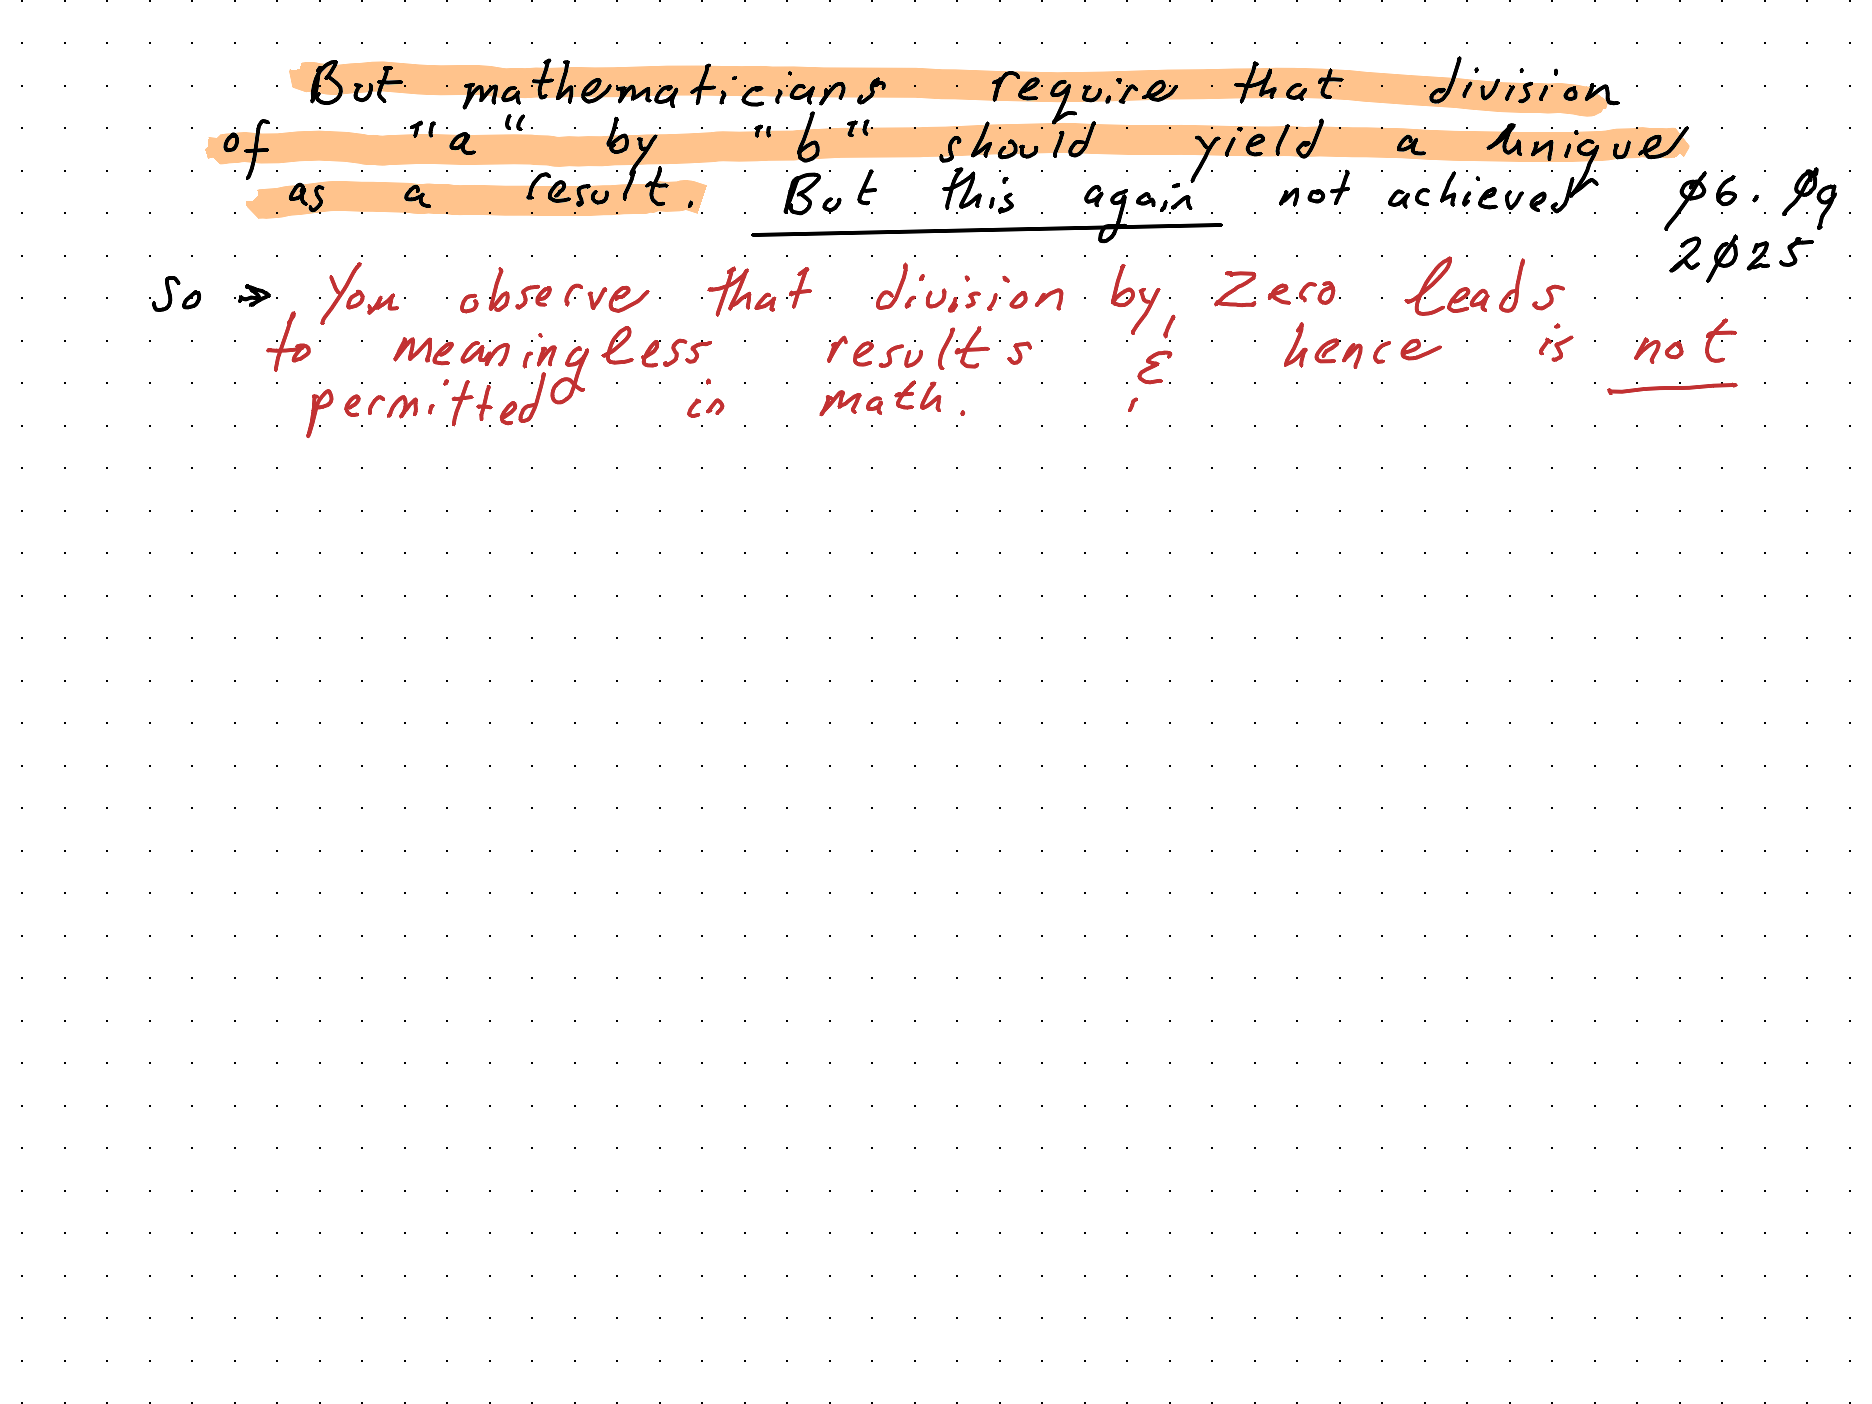 But mathematicians require that division
of "a" by "b" should yield a unique
as a result. But this again not achieved
Ø6. Ø9
2Ø25
So ↠ You observe that division by zero leads
to meaningless results & hence is not
permitted in math.